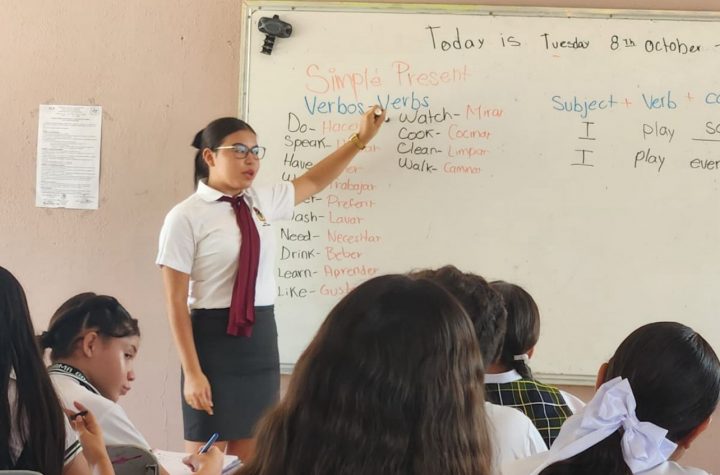 Today is Tuesday 8th October -
Simple Present
Verbos Verbs
Do- Hacer
Speak-
Have-
Trabajar
Preferir
Wash- Lavar
Need- Necesitar
Drink- Beber
Learn- Aprender
Like- Gustar
Watch- Mirar
Cook- Cocinar
Clean- Limpiar
Walk- Caminar
Subject + Verb +
I play
I play